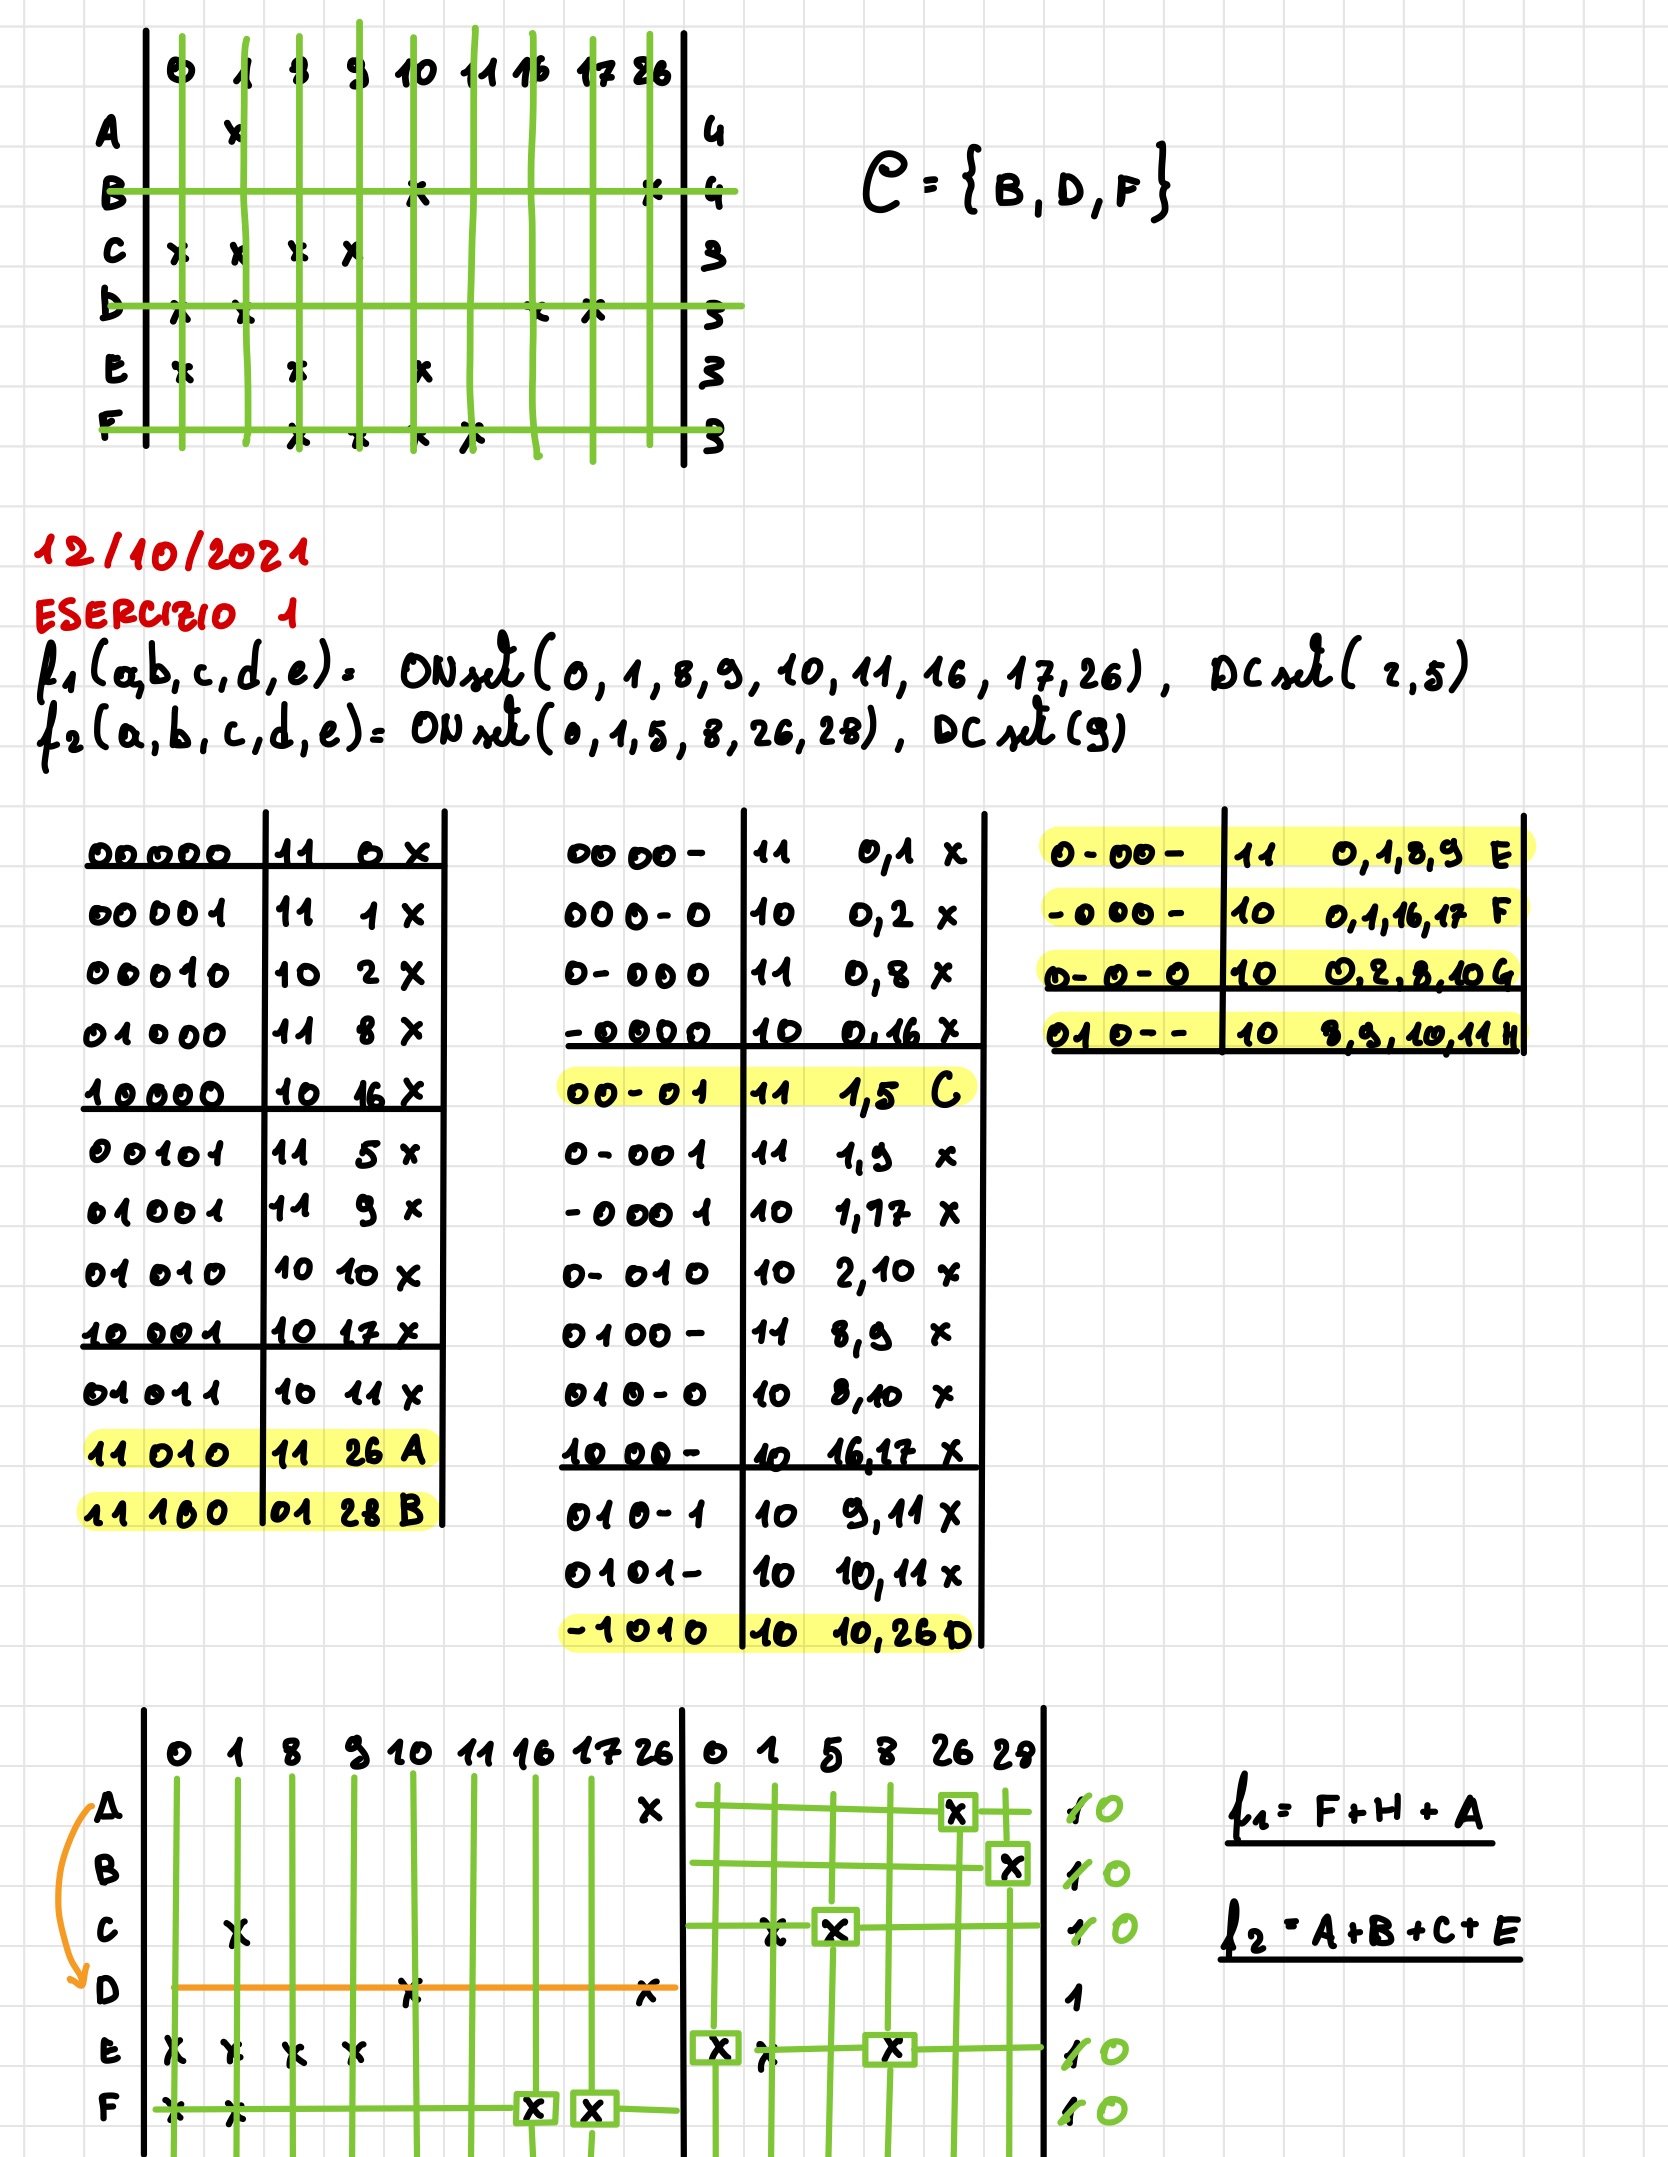 0 1 8 9 10 11 16 17 26
A x 4
B x x 4
C = {B, D, F}
C x x x x 3
D x x x x 3
E x x x 3
F x x x x 3
12/10/2021
ESERCIZIO 1
f1(a,b,c,d,e)= ONset(0,1,8,9,10,11,16,17,26), DCset(2,5)
f2(a,b,c,d,e)= ONset(0,1,5,8,26,28), DCset(9)
00000 11 0 x
00001 11 1 x
00010 10 2 x
01000 11 8 x
10000 10 16 x
00101 11 5 x
01001 11 9 x
01010 10 10 x
10001 10 17 x
01011 10 11 x
11010 11 26 A
11100 01 28 B
0000- 11 0,1 x
000-0 10 0,2 x
0-000 11 0,8 x
-0000 10 0,16 x
00-01 11 1,5 C
0-001 11 1,9 x
-0001 10 1,17 x
0-010 10 2,10 x
0100- 11 8,9 x
010-0 10 8,10 x
1000- 10 16,17 x
010-1 10 9,11 x
0101- 10 10,11 x
-1010 10 10,26 D
0-00- 11 0,1,8,9 E
-000- 10 0,1,16,17 F
0-0-0 10 0,2,8,10 G
010-- 10 8,9,10,11 H
0 1 8 9 10 11 16 17 26 0 1 5 8 26 28
A x x 1 0
B x 1 0
C x x x 1 0
D x x 1
E x x x x x x x 1 0
F x x x x 1 0
f1 = F+H+A
f2 = A+B+C+E